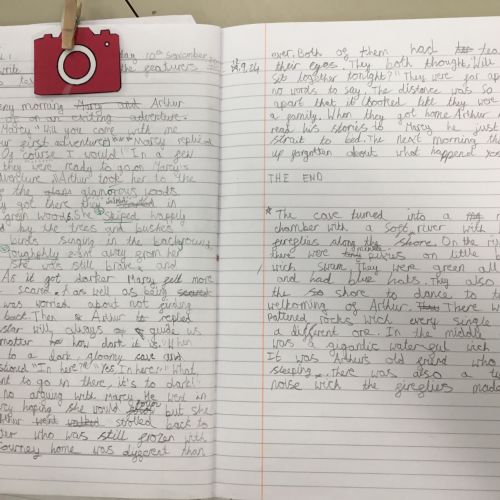 10th September
write the features
morning Arthur
of on an exiting adventure.
Marcy "Will you come with me
our first adventure Marcy replied
Of course I would!" In a few
they were ready to go on Marcy's
Arthur took her to the
the glamorous woods
they in
green woods. She skiped happily
by the trees and bushes
birds singing in the background
away from her
she was still brave and
As it got darker Marcy felt more
scared. As well as being
was worried about not
back Then Arthur replied
star will always guide us
matter how dark it is. When
to a dark, gloomy cave and
"In here?" "Yes In here." "What,
want to go in there, it's to dark!
no arguing with Marcy. He went in
hoping she would but she
Arthur went strolled back to
who was still frozen with
journey home was different than
18.9.24
over. Both of them had
their eyes. They both thought, "Will
get together tonight?" They were far
no words to say. The distance was so
apart that it looked like they were
a family. When they got home Arthur
read his stories to Marcy he just
strait to bed. The next morning the
up forgotten about what happend
THE END
* The cave turned into a
chamber with a soft river with
fireflies along the shore. On the
there were minute pixies on little
wich swam. They were green all
and had blue hats. They also
the shore to dance to
welcoming of Arthur. There
pattered rocks, Wich every single
a different one. In the middle
was a gigantic water-eel wich
It was Arthurs old friend who
sleeping. There was also a
noise wich the fireflies made